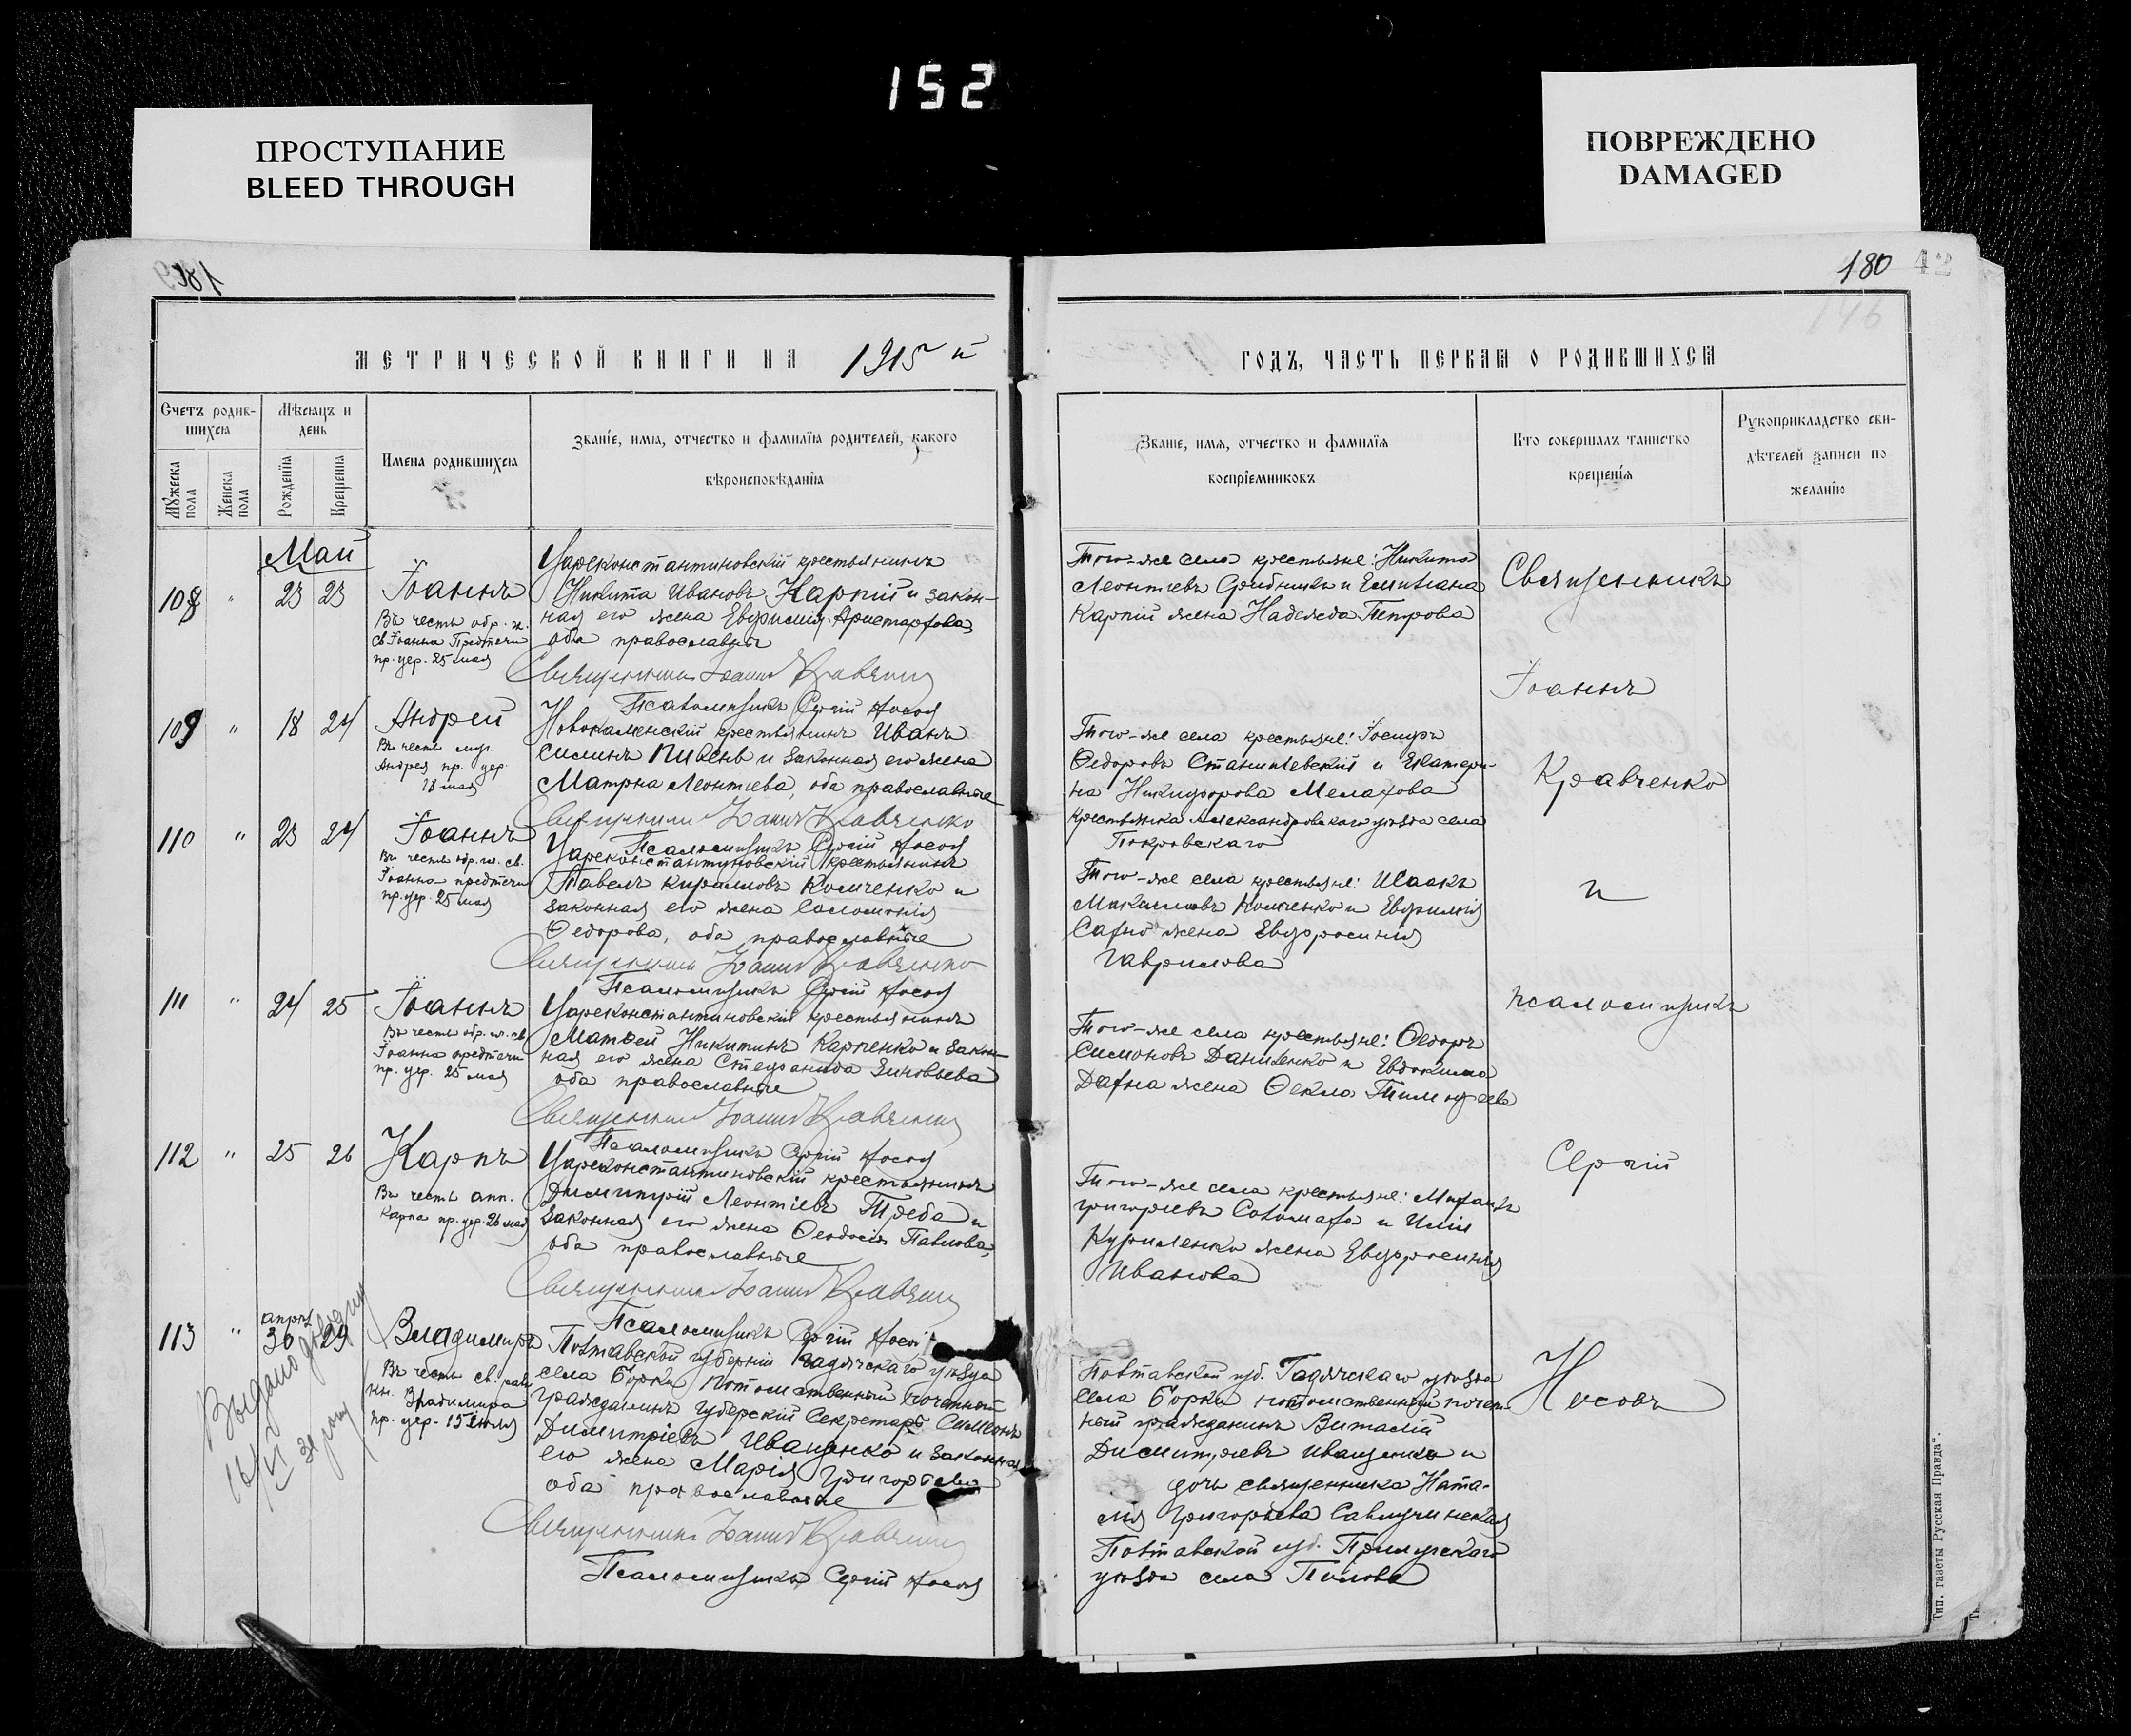 152
ПРОСТУПАНИЕ
BLEED THROUGH
ПОВРЕЖДЕНО
DAMAGED
180 42
146
МЕТРИЧЕСКОЙ КНИГИ НА 1915 й
ГОДЪ, ЧАСТЬ ПЕРВАѦ О РОДИВШИХСѦ
Счетъ родив-
шихсѧ
Мѣсѧцъ и
день
Мꙋжеска
пола
Женска
пола
Рожденїѧ
Крещенїѧ
Имена родившихсѧ
Званїе, имѧ, отчество и фамилїѧ родителей, какого
вѣроисповѣданїѧ
Званїе, имѧ, отчество и фамилїѧ
воспрїемниковъ
Кто совершалъ таинство
крещенїѧ
Рꙋкоприкладство сви-
дѣтелей записи по
желанїю
Май
108 " 23 23
Іоаннъ
Въ честь обр. гл.
св Іоанна Предтечи
пр. цер. 25 мая
Цареконстантиновскій крестьянинъ
Никита Ивановъ Карпій и закон-
ная его жена Евфимія Аристархова
оба православные
Священникъ Іоаннъ Кравченко
Псаломщикъ Сергій Носов
Того-же села крестьяне: Никита
Леонтіевъ и Емиліана
Карпій жена Надежда Петрова
Священникъ
Іоаннъ
Кравченко
109 " 18 24
Андрей
Въ честь муч.
Андрея пр. цер.
18 мая
Новокаменскій крестьянинъ Иванъ
Симинъ Пивень и законная его жена
Матрна Леонтіева, оба православные
Священникъ Іоаннъ Кравченко
Псаломщикъ Сергій Носов
Того-же села крестьяне: Іосифъ
Ѳедоровъ Станишевскій и Екатери-
на Никифорова Мелахова
крестьянка Александровскаго уѣзда села
Покровскаго
110 " 23 24
Іоаннъ
Въ честь обр. гл. св.
Іоанна предтечи
пр. цер. 25 мая
Цареконстантиновскій крестьянинъ
Павелъ Кирилловъ Комченко и
законная его жена Соломонія
Ѳедорова, оба православные
Священникъ Іоаннъ Кравченко
Псаломщикъ Сергій Носов
Того-же села крестьяне: Исаакъ
Максимовъ Комченко и Евфимія
Сахно жена Евфросинія
Гаврилова
и
111 " 24 25
Іоаннъ
Въ честь обр. гл. св
Іоанна предтечи
пр. цер. 25 мая
Цареконстантиновскій крестьянинъ
Матѳей Никитинъ Карпенко и закон-
ная его жена Стефанида Зиновьева
оба православные
Священникъ Іоаннъ Кравченко
Псаломщикъ Сергій Носов
Того-же села крестьяне: Ѳедоръ
Симоновъ Даниленко и Евдокима
Дахна жена Ѳекла Тимоѳеева
псаломщикъ
112 " 25 26
Карпъ
Въ честь апп.
Карпа пр. цер. 26 мая
Цареконстантиновскій крестьянинъ
Димитрій Леонтіевъ Треба и
законная его жена Ѳеодосія Павлова,
оба православные
Священникъ Іоаннъ Кравченко
Псаломщикъ Сергій Носов
Того-же села крестьяне: Михаилъ
Григорьевъ Соломаха и Иліи
Куриленко жена Евфросинія
Иванова
Сергій
113 " апрѣл 30 29
Владимиръ
Въ честь св. рав
кн. Владимира
пр. цер. 15 Іюля
Полтавской губерніи Гадячскаго уѣзда
села Борки потомственный почетный
гражданинъ Губерскій Секретарь Симеонъ
Димитріевъ Иващенко и законная
его жена Марія Григорьева
оба православные
Священникъ Іоаннъ Кравченко
Псаломщикъ Сергій Носов
Полтавской губ. Гадячскаго уѣзда
села Борки потомственный почет-
ный гражданинъ Виталій
Димитріевъ Иващенко и
дочь священника Ната-
лія Григорьева Савлучинская
Полтавской губ. Прилукскаго
уѣзда села
Носовъ
Выдано
Тип. газеты Русская Правда“.